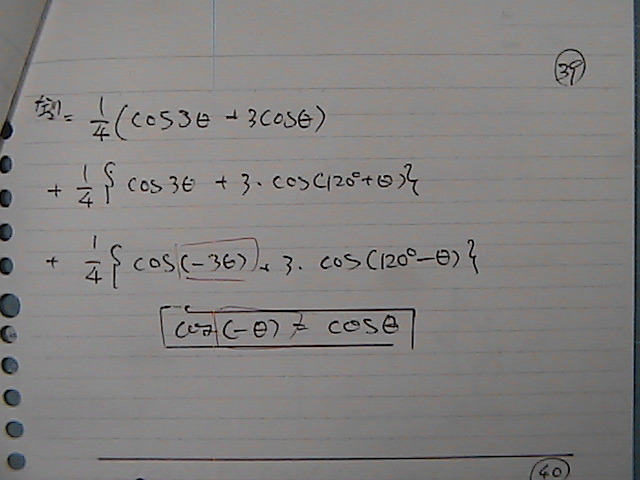 39
= 1/4 (cos3θ + 3cosθ)
+ 1/4 { cos3θ + 3・cos(120°+θ) }
+ 1/4 { cos(-3θ) + 3・cos(120°-θ) }
cos(-θ) = cosθ
40